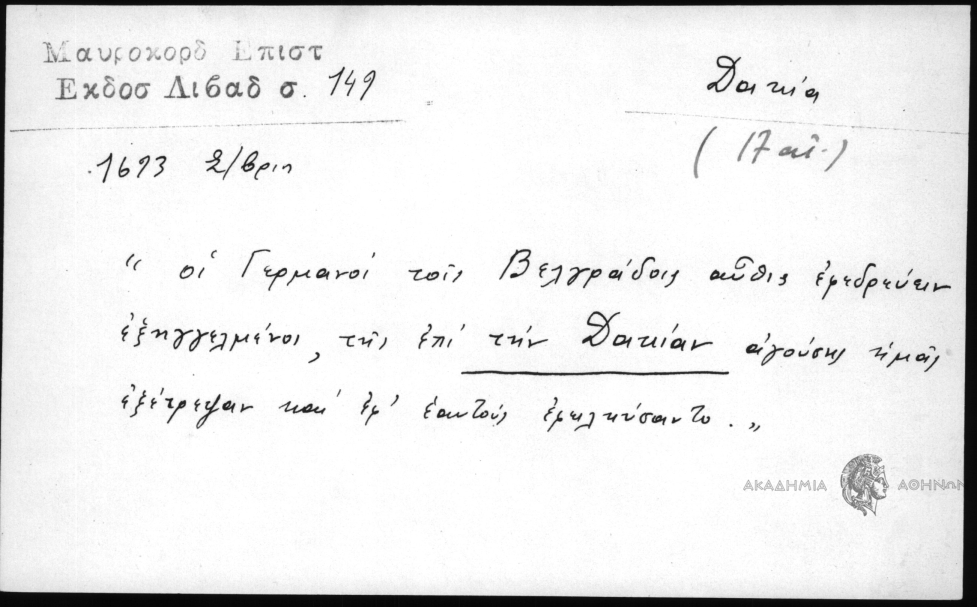 Μαυροκορδ Επιστ
Εκδοσ Λιβαδ σ. 149
Δακία
(17 αἰ.)
1693 Σ/βριῃ
“ οἱ Γερμανοί τοῖς Βελγράδοις αὖθις ἐφεδρεύειν
ἐξηγγελμένοι, τῆς ἐπί τήν Δακίαν ἀγούσης ἡμᾶς
ἐξέτρεψαν καί ἐφ' ἑαυτούς ἐφελκύσαντο. „
ΑΚΑΔΗΜΙΑ ΑΘΗΝΩΝ